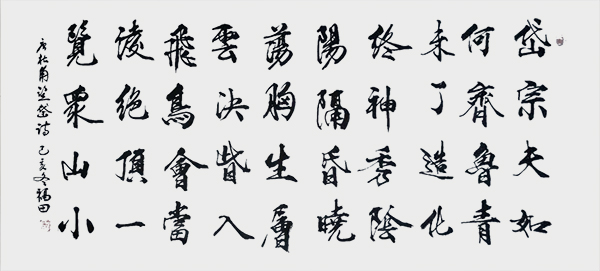 岱宗夫如
何齊魯青
未了造化
終神秀陰
陽隔昏曉
蕩胸生層
雲決眥入
飛鳥會當
淩絕頂一
覽衆山小
唐杜甫望岱詩 己亥冬福田